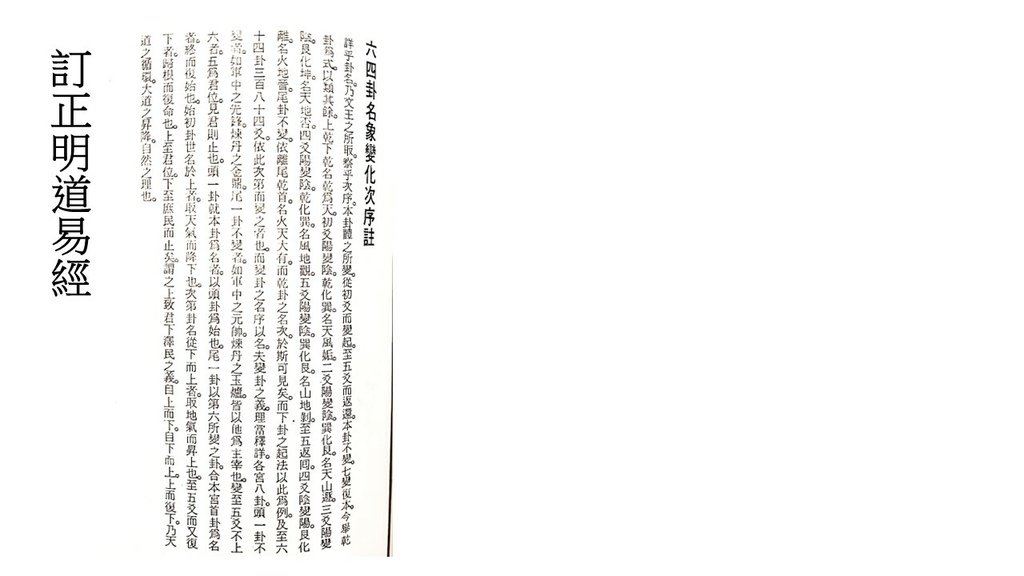 六四卦名象變化次序註
詳乎卦名。乃文王之所取。察乎次序。本卦體之所變。從初爻而變起。至五爻而返還。本卦不變。七變復本。今舉乾
卦爲式。以類其餘。上乾下乾名乾爲天。初爻陽變陰。乾化巽。名天風姤。二爻陽變陰。巽化艮。名天山遯。三爻陽變
陰。艮化坤。名天地否。四爻陽變陰。乾化巽。名風地觀。五爻陽變陰。巽化艮。名山地剝。至五返回。四爻陰變陽。艮化
離。名火地晉。尾卦不變。依離尾乾首。名火天大有。而乾卦之名次。於斯可見矣。而下卦之起法以此爲例。及至六
十四卦三百八十四爻。依此次第而變之者也。而變卦之名序以名。夫變卦之義理當釋詳。各宮八卦。頭一卦不
變者。如軍中之先鋒。煉丹之金鼎。尾一卦不變者。如軍中之元帥。煉丹之玉爐。皆以他爲主宰也。變至五爻不上
六者。五爲君位。見君則止也。頭一卦就本卦爲名者。以頭卦爲始也。尾一卦以第六所變之卦。合本宮首卦爲名
者。終而復始也。始初卦世名於上者。取天氣而降下也。次第卦名從下而上者。取地氣而昇上也。至五爻而又復
下者。歸根而復命也。上至君位。下至庶民而止矣。謂之上致君下澤民之義。自上而下。自下而上。上而復下。乃天
道之循環。大道之昇降。自然之理也。
訂正明道易經